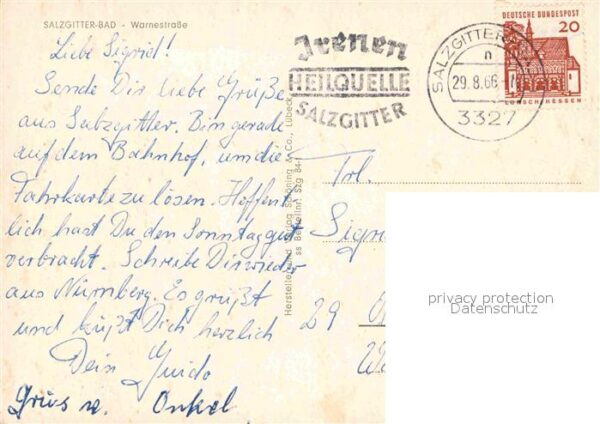 SALZGITTER-BAD - Warnestraße
Liebe Sigrid!
Sende Dir liebe Grüße
aus Salzgitter. Bin gerade
auf dem Bahnhof, um die
Fahrkarte zu lösen. Hoffent
lich hast Du den Sonntag gut
verbracht. Schreibe Dir wieder
aus Nürnberg. Es grüßt
und küßt Dich herzlich
Dein Guido
Grus v. Onkel
Hersteller und Verlag Schöning & Co., Lübeck
ss Bestellnr. Szg 84
Irenen
HEILQUELLE
SALZGITTER
SALZGITTER
n
29.8.66
3327
DEUTSCHE BUNDESPOST
20
LORSCH/HESSEN
Frl.
Sigrid
29
privacy protection
Datenschutz